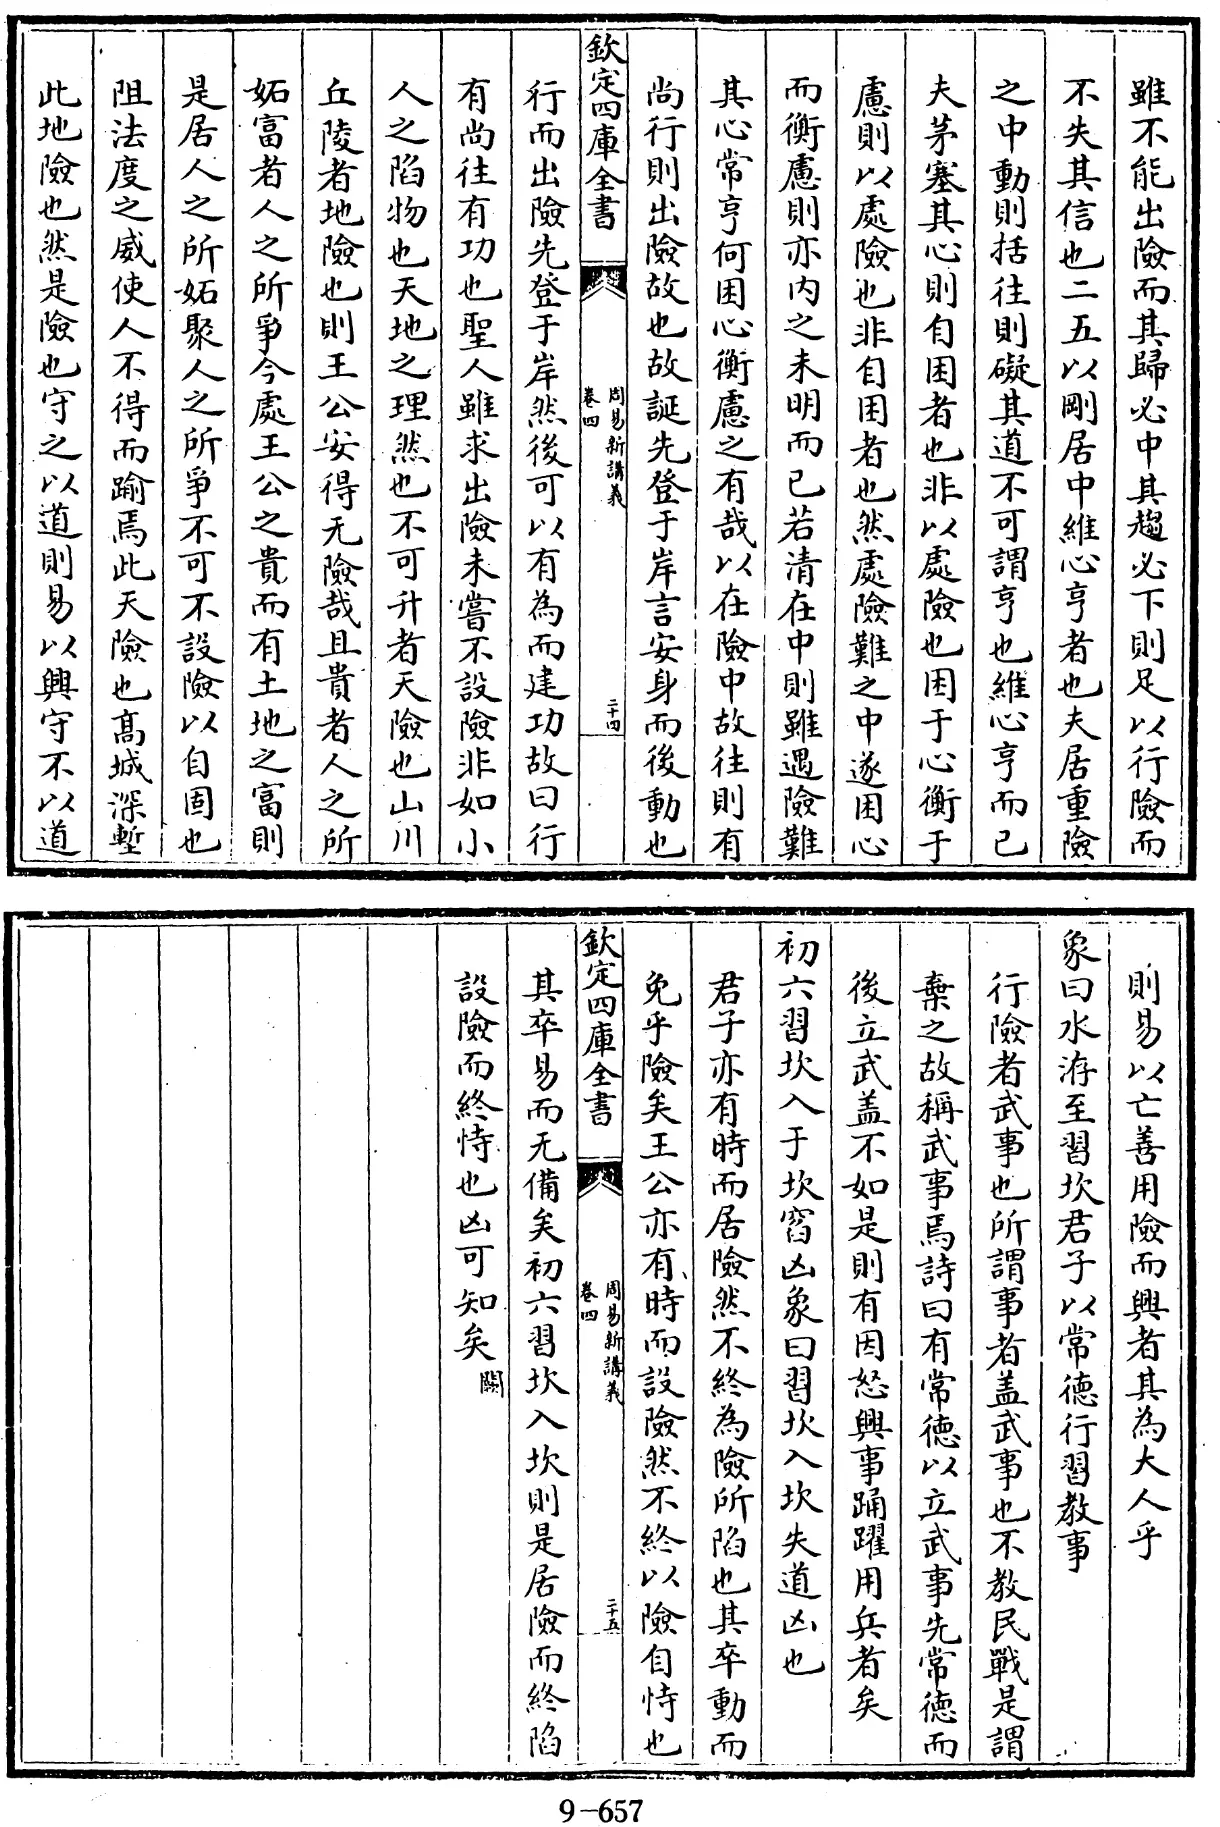 雖不能出險而其歸必中其趨必下則足以行險而
不失其信也二五以剛居中維心亨者也夫居重險
之中動則括往則礙其道不可謂亨也維心亨而已
夫茅塞其心則自困者也非以處險也困于心衡于
慮則以處險也非自困者也然處險難之中遂困心
而衡慮則亦内之未明而已若清在中則雖遇險難
其心常亨何困心衡慮之有哉以在險中故往則有
尚行則出險故也故誕先登于岸言安身而後動也
欽定四庫全書
周易新講義
卷四
二十四
行而出險先登于岸然後可以有為而建功故曰行
有尚往有功也聖人雖求出險未嘗不設險非如小
人之陷物也天地之理然也不可升者天險也山川
丘陵者地險也則王公安得无險哉且貴者人之所
妬富者人之所爭今處王公之貴而有土地之富則
是居人之所妬聚人之所爭不可不設險以自固也
阻法度之威使人不得而踰焉此天險也髙城深塹
此地險也然是險也守之以道則易以興守不以道
則易以亡善用險而興者其為大人乎
象曰水洊至習坎君子以常德行習教事
行險者武事也所謂事者盖武事也不教民戰是謂
棄之故稱武事焉詩曰有常德以立武事先常德而
後立武盖不如是則有因怒興事踊躍用兵者矣
初六習坎入于坎窞凶象曰習坎入坎失道凶也
君子亦有時而居險然不終為險所陷也其卒動而
免乎險矣王公亦有時而設險然不終以險自恃也
欽定四庫全書
周易新講義
卷四
二十五
其卒易而无備矣初六習坎入坎則是居險而終陷
設險而終恃也凶可知矣闕
9-657